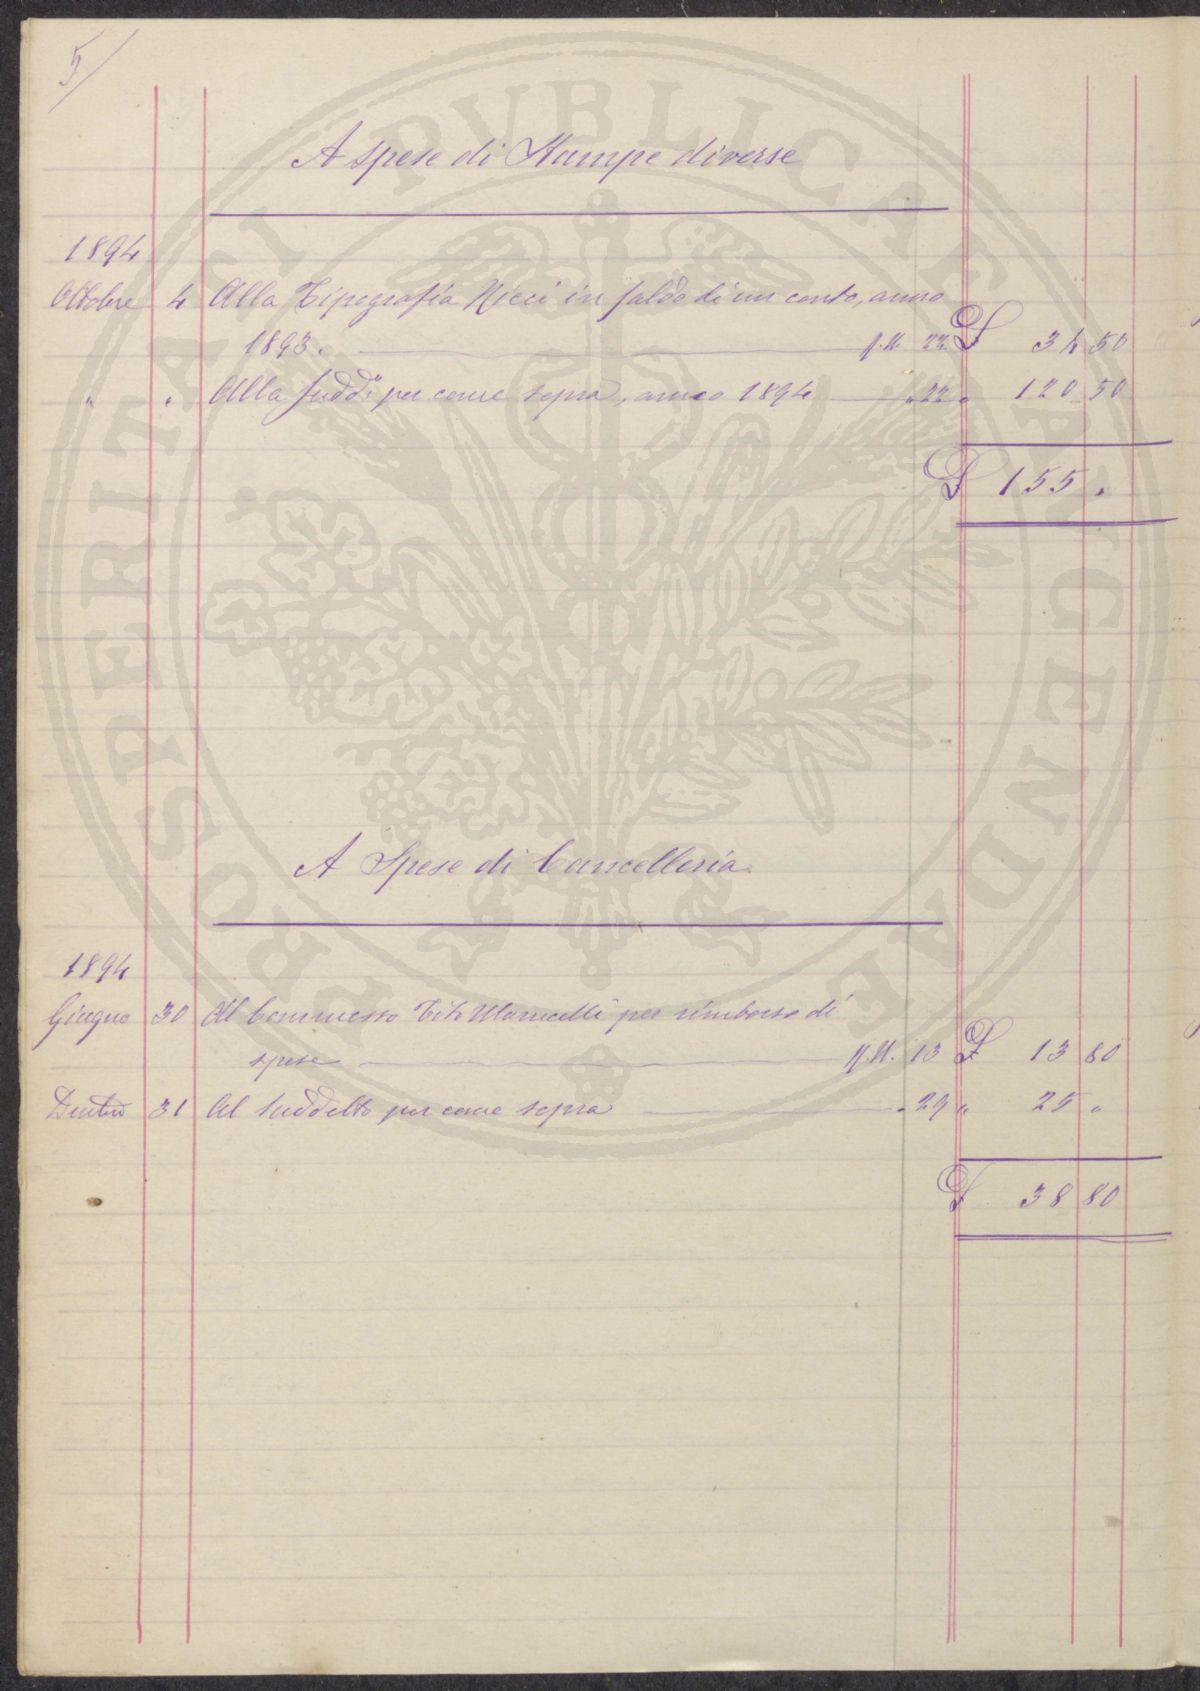 5/
A spese di Stampe diverse
1894
Ottobre 4 Alla Tipografia Ricci in saldo di un conto, anno
1893. f.M. 22 £ 34 50
" " Alla sudda per come sopra, anno 1894 " 22 " 120 50
£ 155 "
A Spese di Cancelleria.
1894
Giugno 30 Al Commesso Tito Marucelli per rimborso di
spese f.M. 13 £ 13 80
31 Al suddetto per come sopra " 29 " 25 "
£ 38 80
PROSPERITATI PVBLICAE AVGENDAE